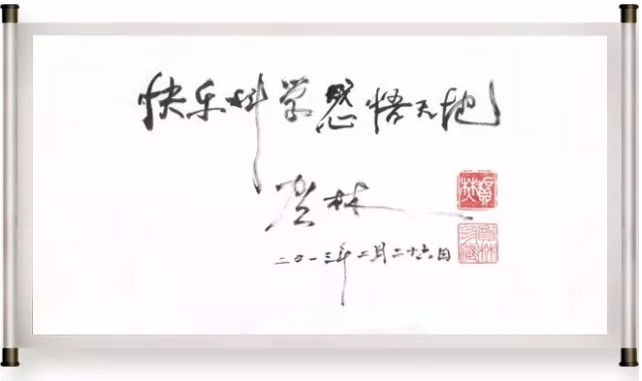 快乐科学感悟天地
贺林
二〇一三年二月二十六日